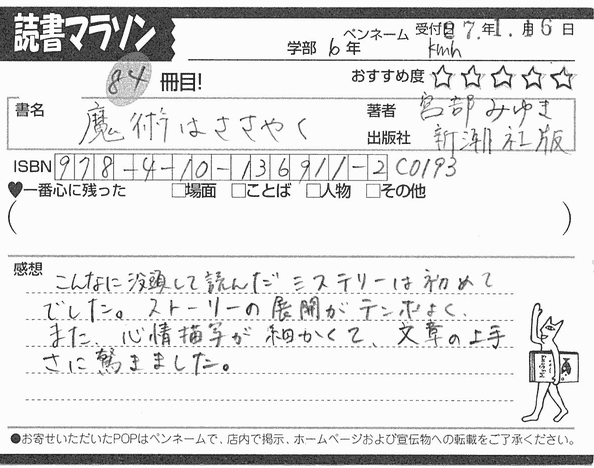 読書マラソン
受付日 27.年1.月16日
学部 6年 ペンネーム kmh
84 冊目!
おすすめ度 ☆☆☆☆☆
書名 魔術はささやく
著者 宮部みゆき
出版社 新潮社版
ISBN 978-4-10-136911-2 C0193
♥一番心に残った □場面 □ことば □人物 □その他
( )
感想
こんなに没頭して読んだミステリーは初めて
でした。ストーリーの展開がテンポよく、
また、心情描写が細かくて、文章の上手
さに驚きました。
●お寄せいただいたPOPはペンネームで、店内で掲示、ホームページおよび宣伝物への転載をご了承ください。